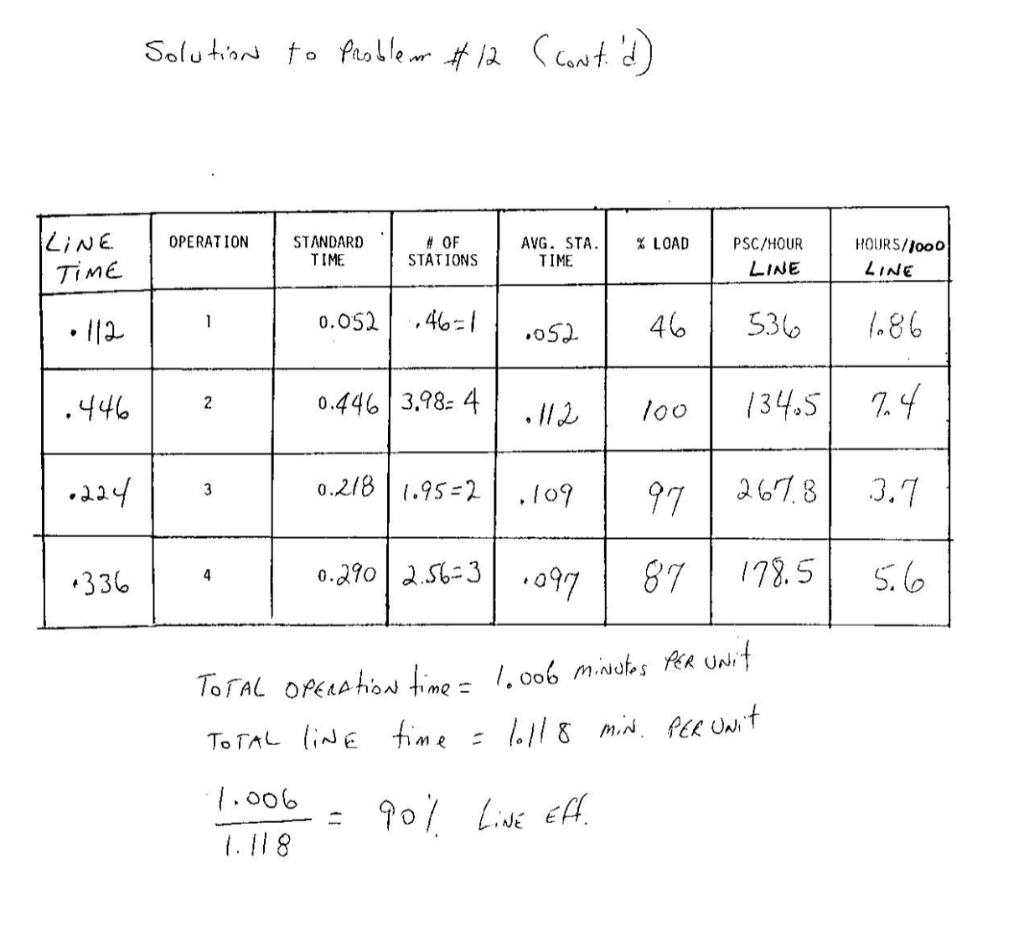 Solution to Problem # 12 (cont.'d)
LINE TIME | OPERATION | STANDARD TIME | # OF STATIONS | AVG. STA. TIME | % LOAD | PSC/HOUR LINE | HOURS/1000 LINE
.112 | 1 | 0.052 | .46=1 | .052 | 46 | 536 | 1.86
.446 | 2 | 0.446 | 3.98=4 | .112 | 100 | 134.5 | 7.4
.224 | 3 | 0.218 | 1.95=2 | .109 | 97 | 267.8 | 3.7
.336 | 4 | 0.290 | 2.56=3 | .097 | 87 | 178.5 | 5.6
TOTAL OPERATION time = 1.006 minutes PER UNIT
TOTAL LINE time = 1.118 min. PER UNIT
1.006
= 90% LINE Eff.
1.118